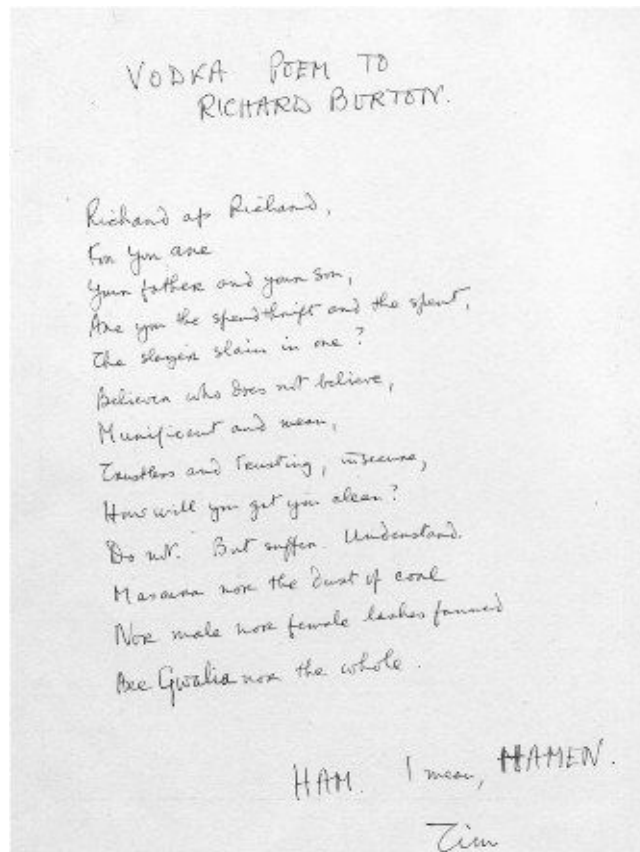 VODKA POEM TO
RICHARD BURTON.
Richard ap Richard,
For you are
Your father and your son,
Are you the spendthrift and the spent,
The slayer slain in one?
Believer who does not believe,
Munificent and mean,
Trustless and trusting, insecure,
How will you get you clean?
Do not. But suffer. Understand.
Mascara nor the dust of coal
Nor male nor female lashes fanned
Are Gwalia nor the whole.
HAM. I mean, HAMEN.
Tim